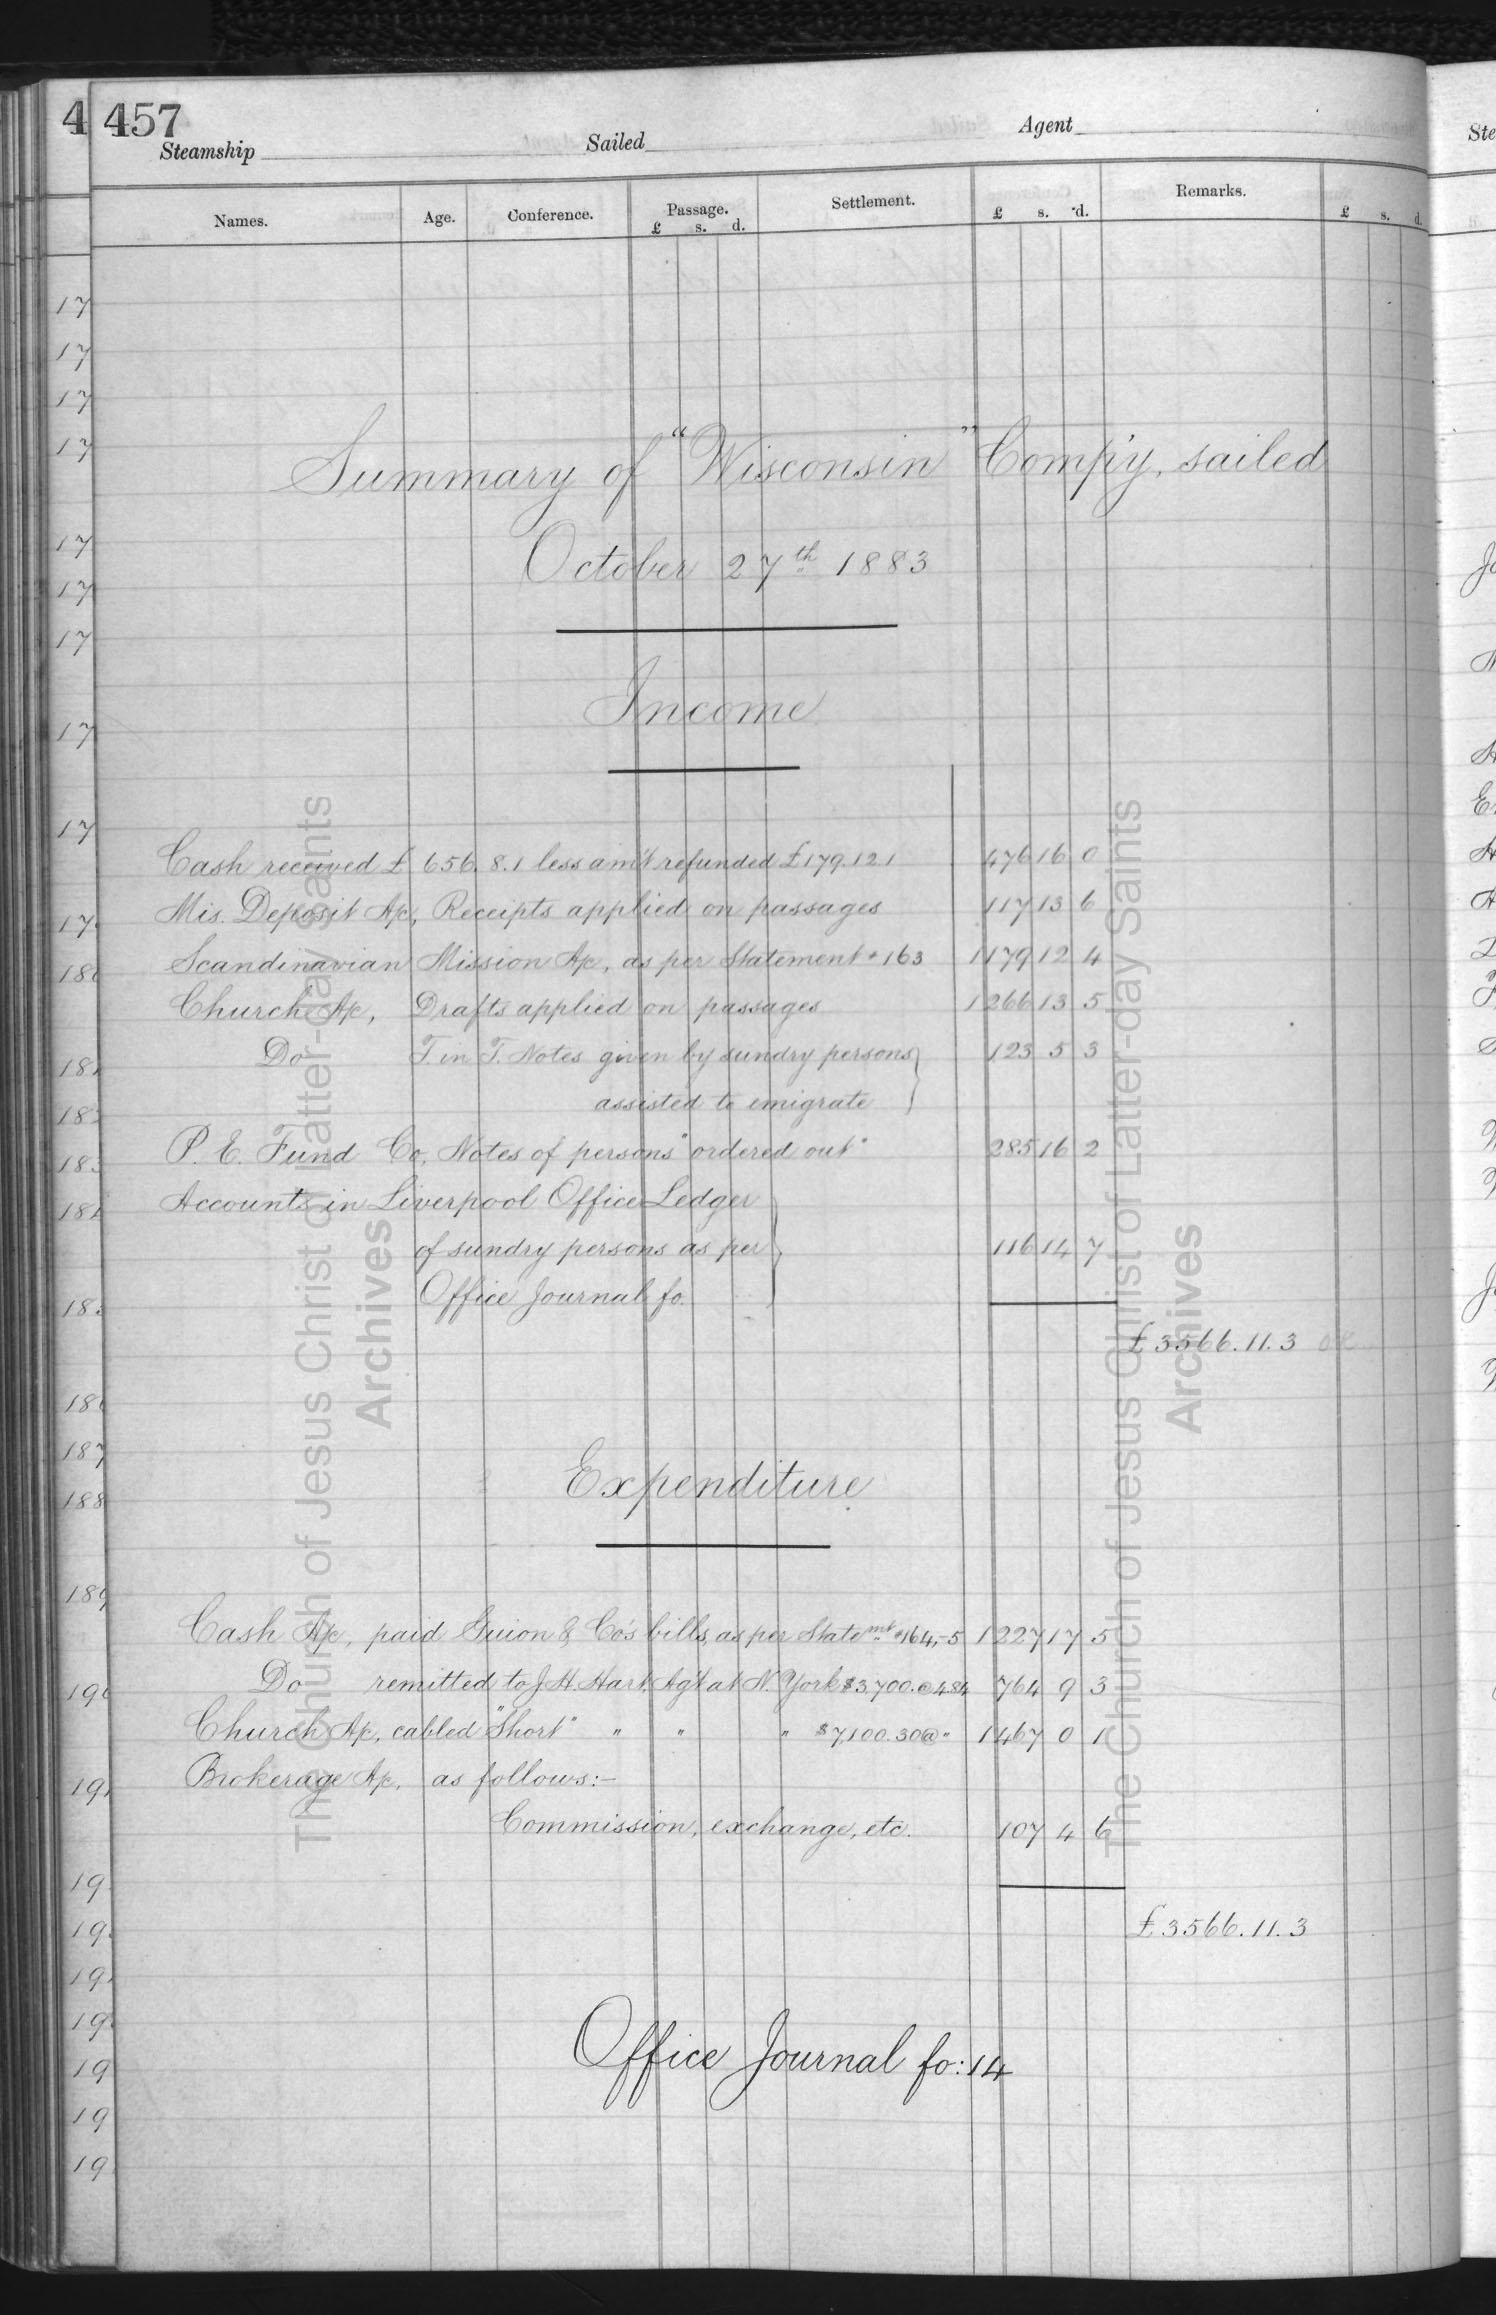 457
Steamship Sailed Agent
Names. Age. Conference. Passage. Settlement. £ s. d. Remarks. £ s. d.
£ s. d.
Summary of "Wisconsin" Comp'y, sailed
October 27th 1883
Income
Cash received £656.8.1 less am't refunded £179.12.1 476 16 0
Mis. Deposit A/c, Receipts applied on passages 117 13 6
Scandinavian Mission A/c, as per Statement # 163 1179 12 4
Church A/c, Drafts applied on passages 1266 13 5
Do T. in T. Notes given by sundry persons 123 5 3
assisted to emigrate
P. E. Fund Co, Notes of persons "ordered out" 285 16 2
Accounts in Liverpool Office Ledger
of sundry persons as per 116 14 7
Office Journal fo.
£3566.11.3
Expenditure
Cash A/c, paid Guion & Co's bills, as per Statemnt #164,-5 1227 17 5
Do remitted to J. H. Hart, Ag't at N. York $3,700.@484 764 9 3
Church A/c, cabled "Short" " " " $7,100.30@" 1467 0 1
Brokerage A/c, as follows:-
Commission, exchange, etc. 107 4 6
£3566.11.3
Office Journal fo: 14
The Church of Jesus Christ of Latter-day Saints
Archives
The Church of Jesus Christ of Latter-day Saints
Archives